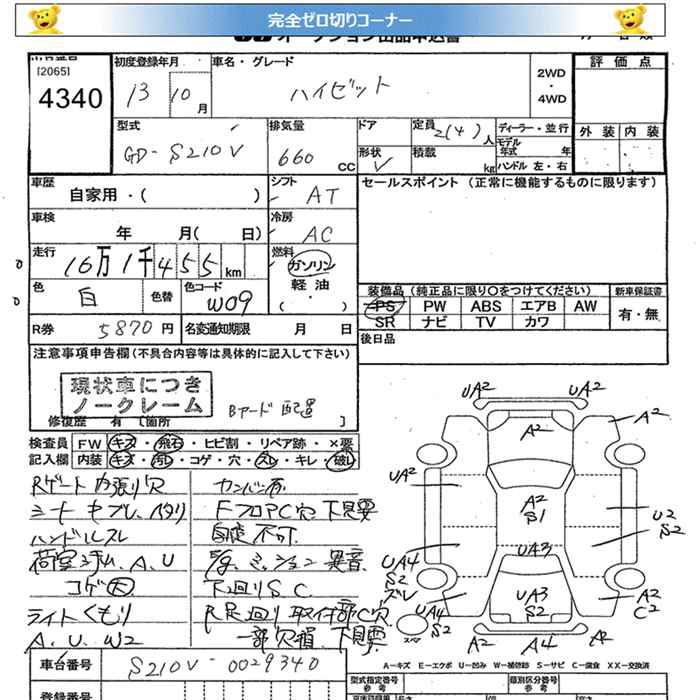 完全ゼロ切りコーナー
[2065]
4340
初度登録年月
13 10 月
車名・グレード
ハイゼット
2WD
・
4WD
評価点
外装 内装
型式
GD-S210V
排気量
660 CC
ドア
形状 V
定員 2(4) 人
積載 kg
ディーラー・並行
モデル年式 年
ハンドル 左・右
車歴
自家用・( )
シフト
AT
セールスポイント（正常に機能するものに限ります）
車検
年 月( 日)
冷房
AC
走行
16万1千455km
燃料
ガソリン
軽油
・
( )
色
白
色替
色コード
W09
装備品（純正品に限り○をつけてください）
新車保証書
PS PW ABS エアB AW
有・無
SR ナビ TV カワ
R券 5870円
名変通期限 月 日
後日品
注意事項申告欄(不具合内容等は具体的に記入して下さい)
現状車につき
ノークレーム
Bヤード 配置
修復歴 有 [箇所 ]
検査員
記入欄
FW キズ・飛石・ヒビ割・リペア跡・×要
内装 キズ・汚レ・コゲ・穴・スレ・キレ・破レ
Rゲート内張り穴
ハンドルスレ
コゲ大
ライトくもり
A、U、W2
カンバン有
下見要
自走不可
ミッション異音
下廻りS、C
R足廻り取付部C穴
一部欠損、下見要
UA2 UA2
A2 A2
UA2
A2
S1
U2
S2
UA3
UA4
S2
ズレ
UA3
S2
A2
C2
UA4
S2
A2 A4 A2
A-キズ E-エクボ U-凹み W-補修跡 S-サビ C-腐食 XX-交換済
車台番号
S210V-0029340
登録番号
型式指定番号
参考
類別区分番号
参考